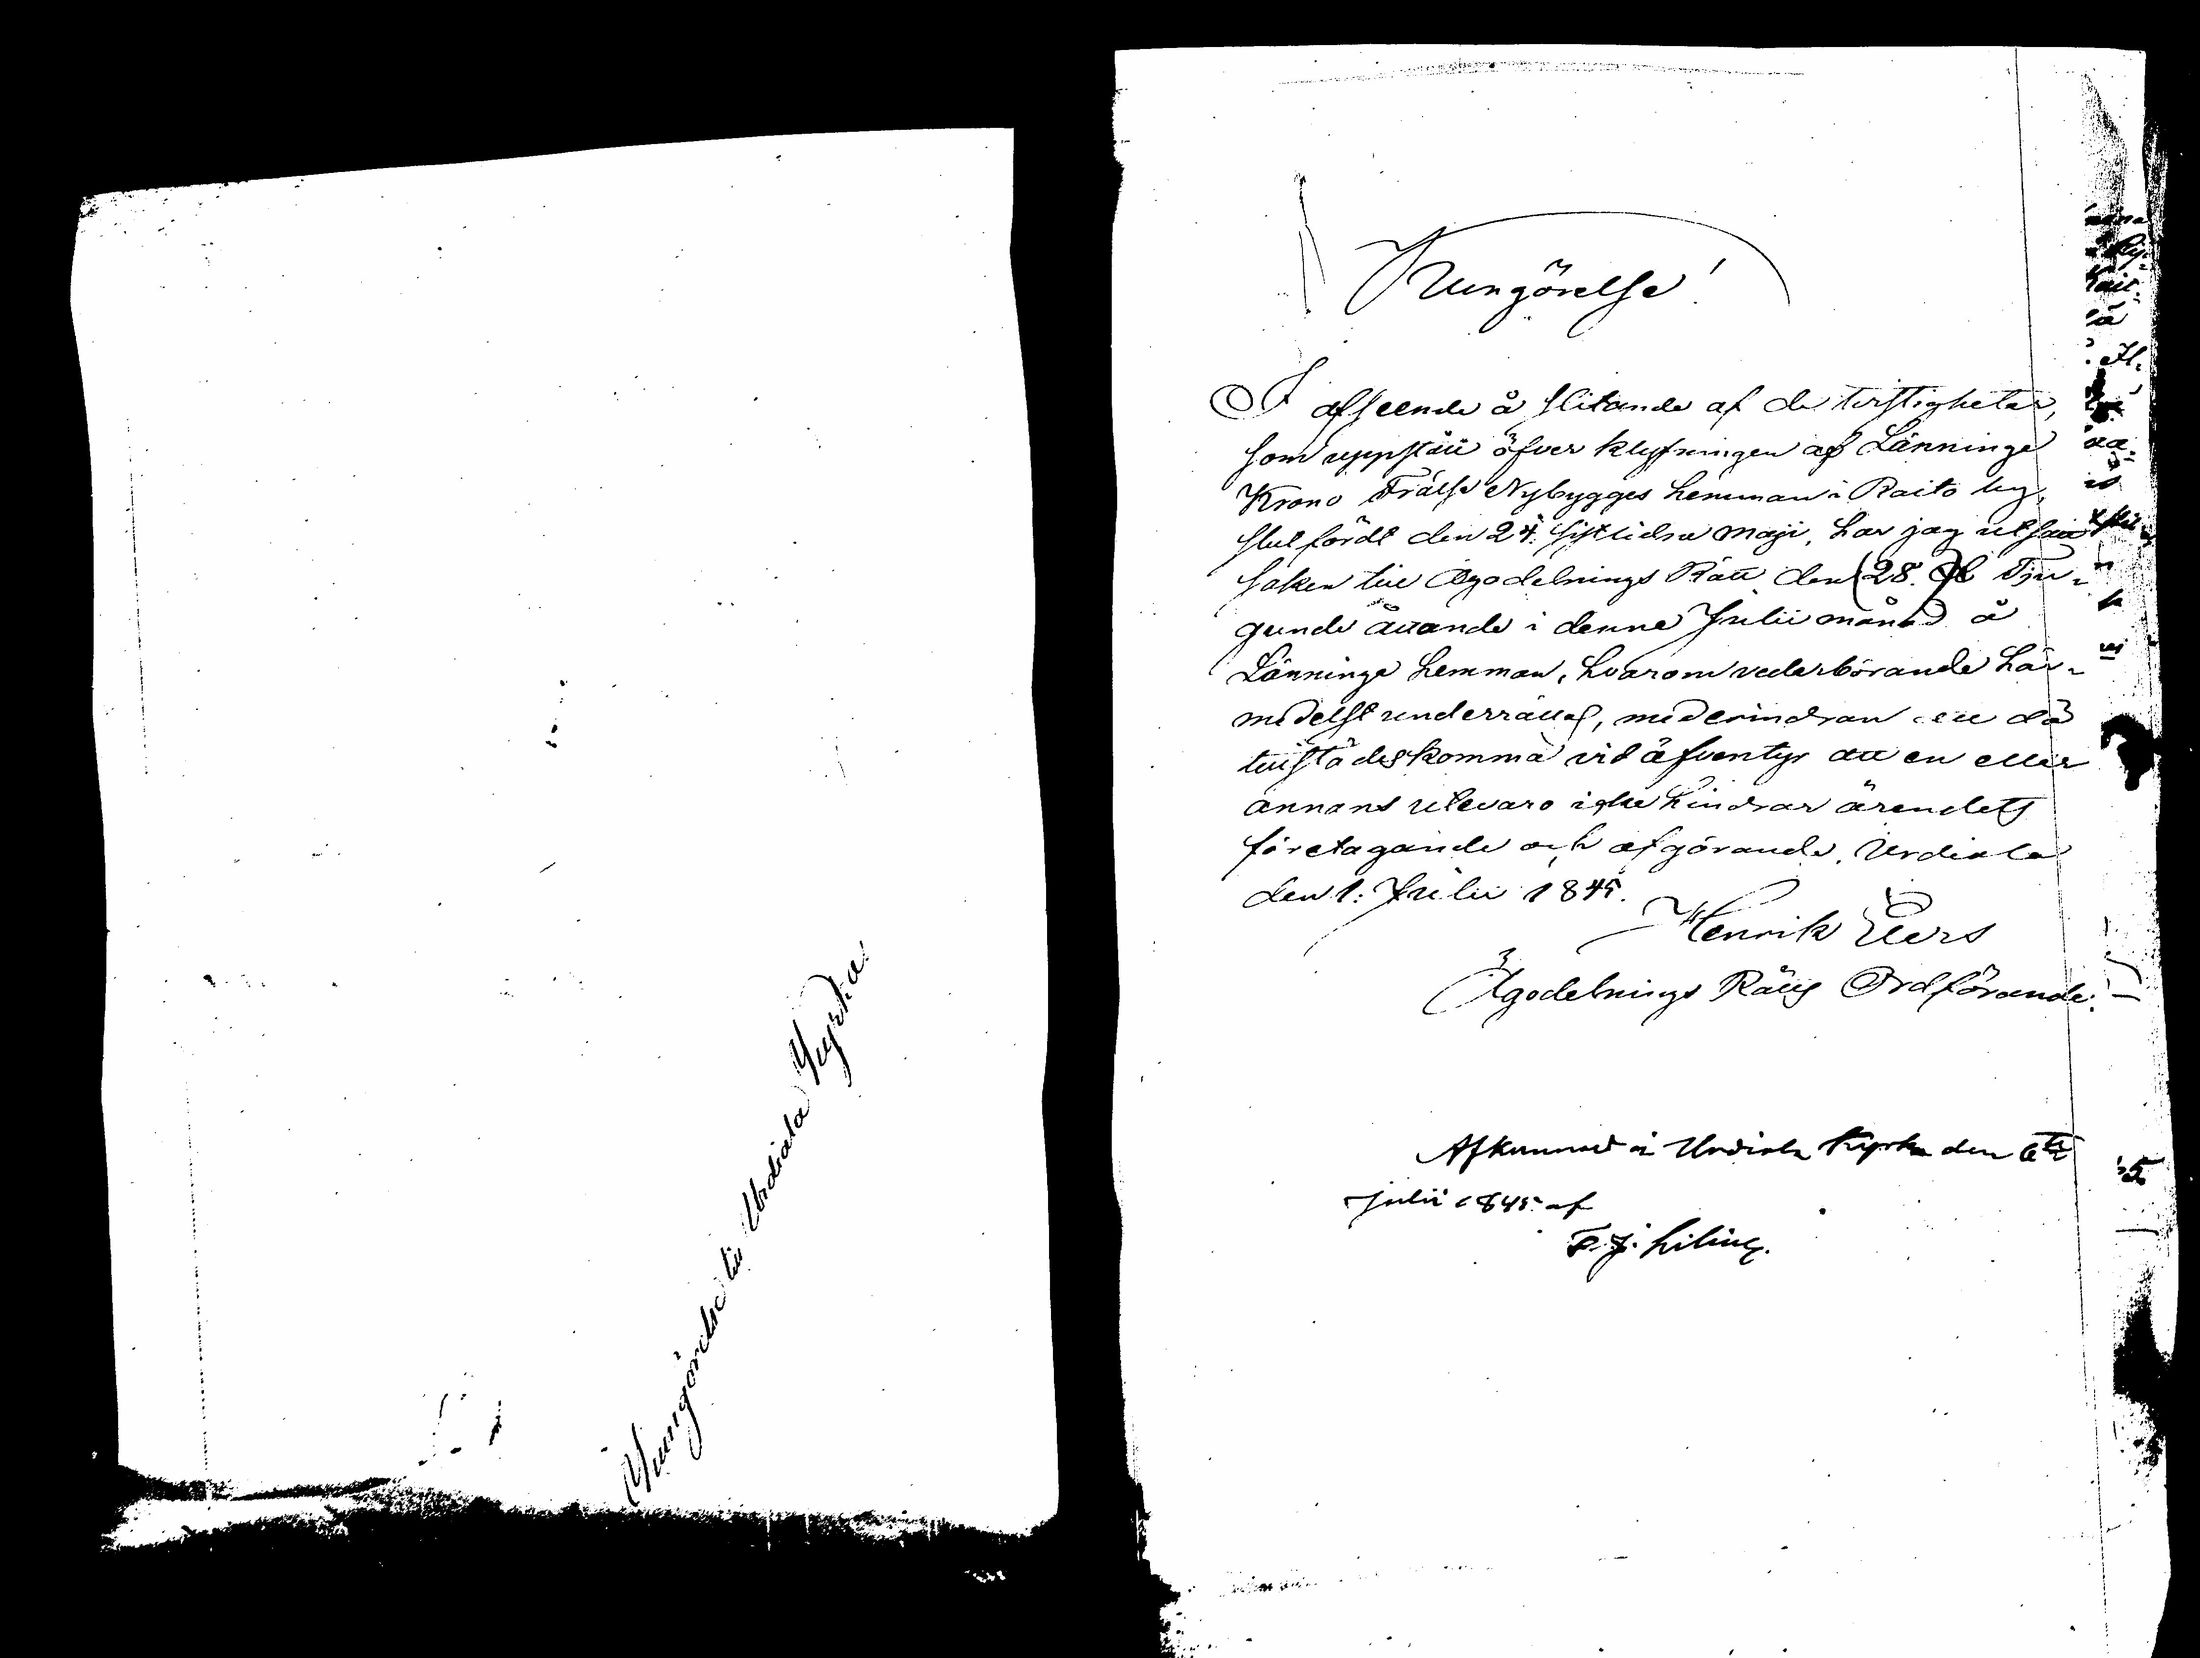 Kungörelse till Urdiala Kyrka.
Kungörelse!
I afseende å slitande af de tvistigheter,
som uppstått öfver klyfningen af Länninge
Krono Frälse Nybygges hemman i Raito by,
slutfördt den 24. sistlidne Maji, har jag utsatt
saken till Ägodelnings Rätt den (28.) Tju-
gunde åttande i denne Julii månad å
Länninge hemman, hvarom vederbörande här-
medelst underrättas, med erindran att då
tillstädeskomma vid äfventyr att en eller
annans utevaro icke hindrar ärendets
företagande och afgörande. Urdiala
den 1. Julii 1845.
Henrik
Ägodelnings Rätts Ordförande.
Afkunnad i Urdiala Kyrka den 6te
Julii 1845 af
F. J.